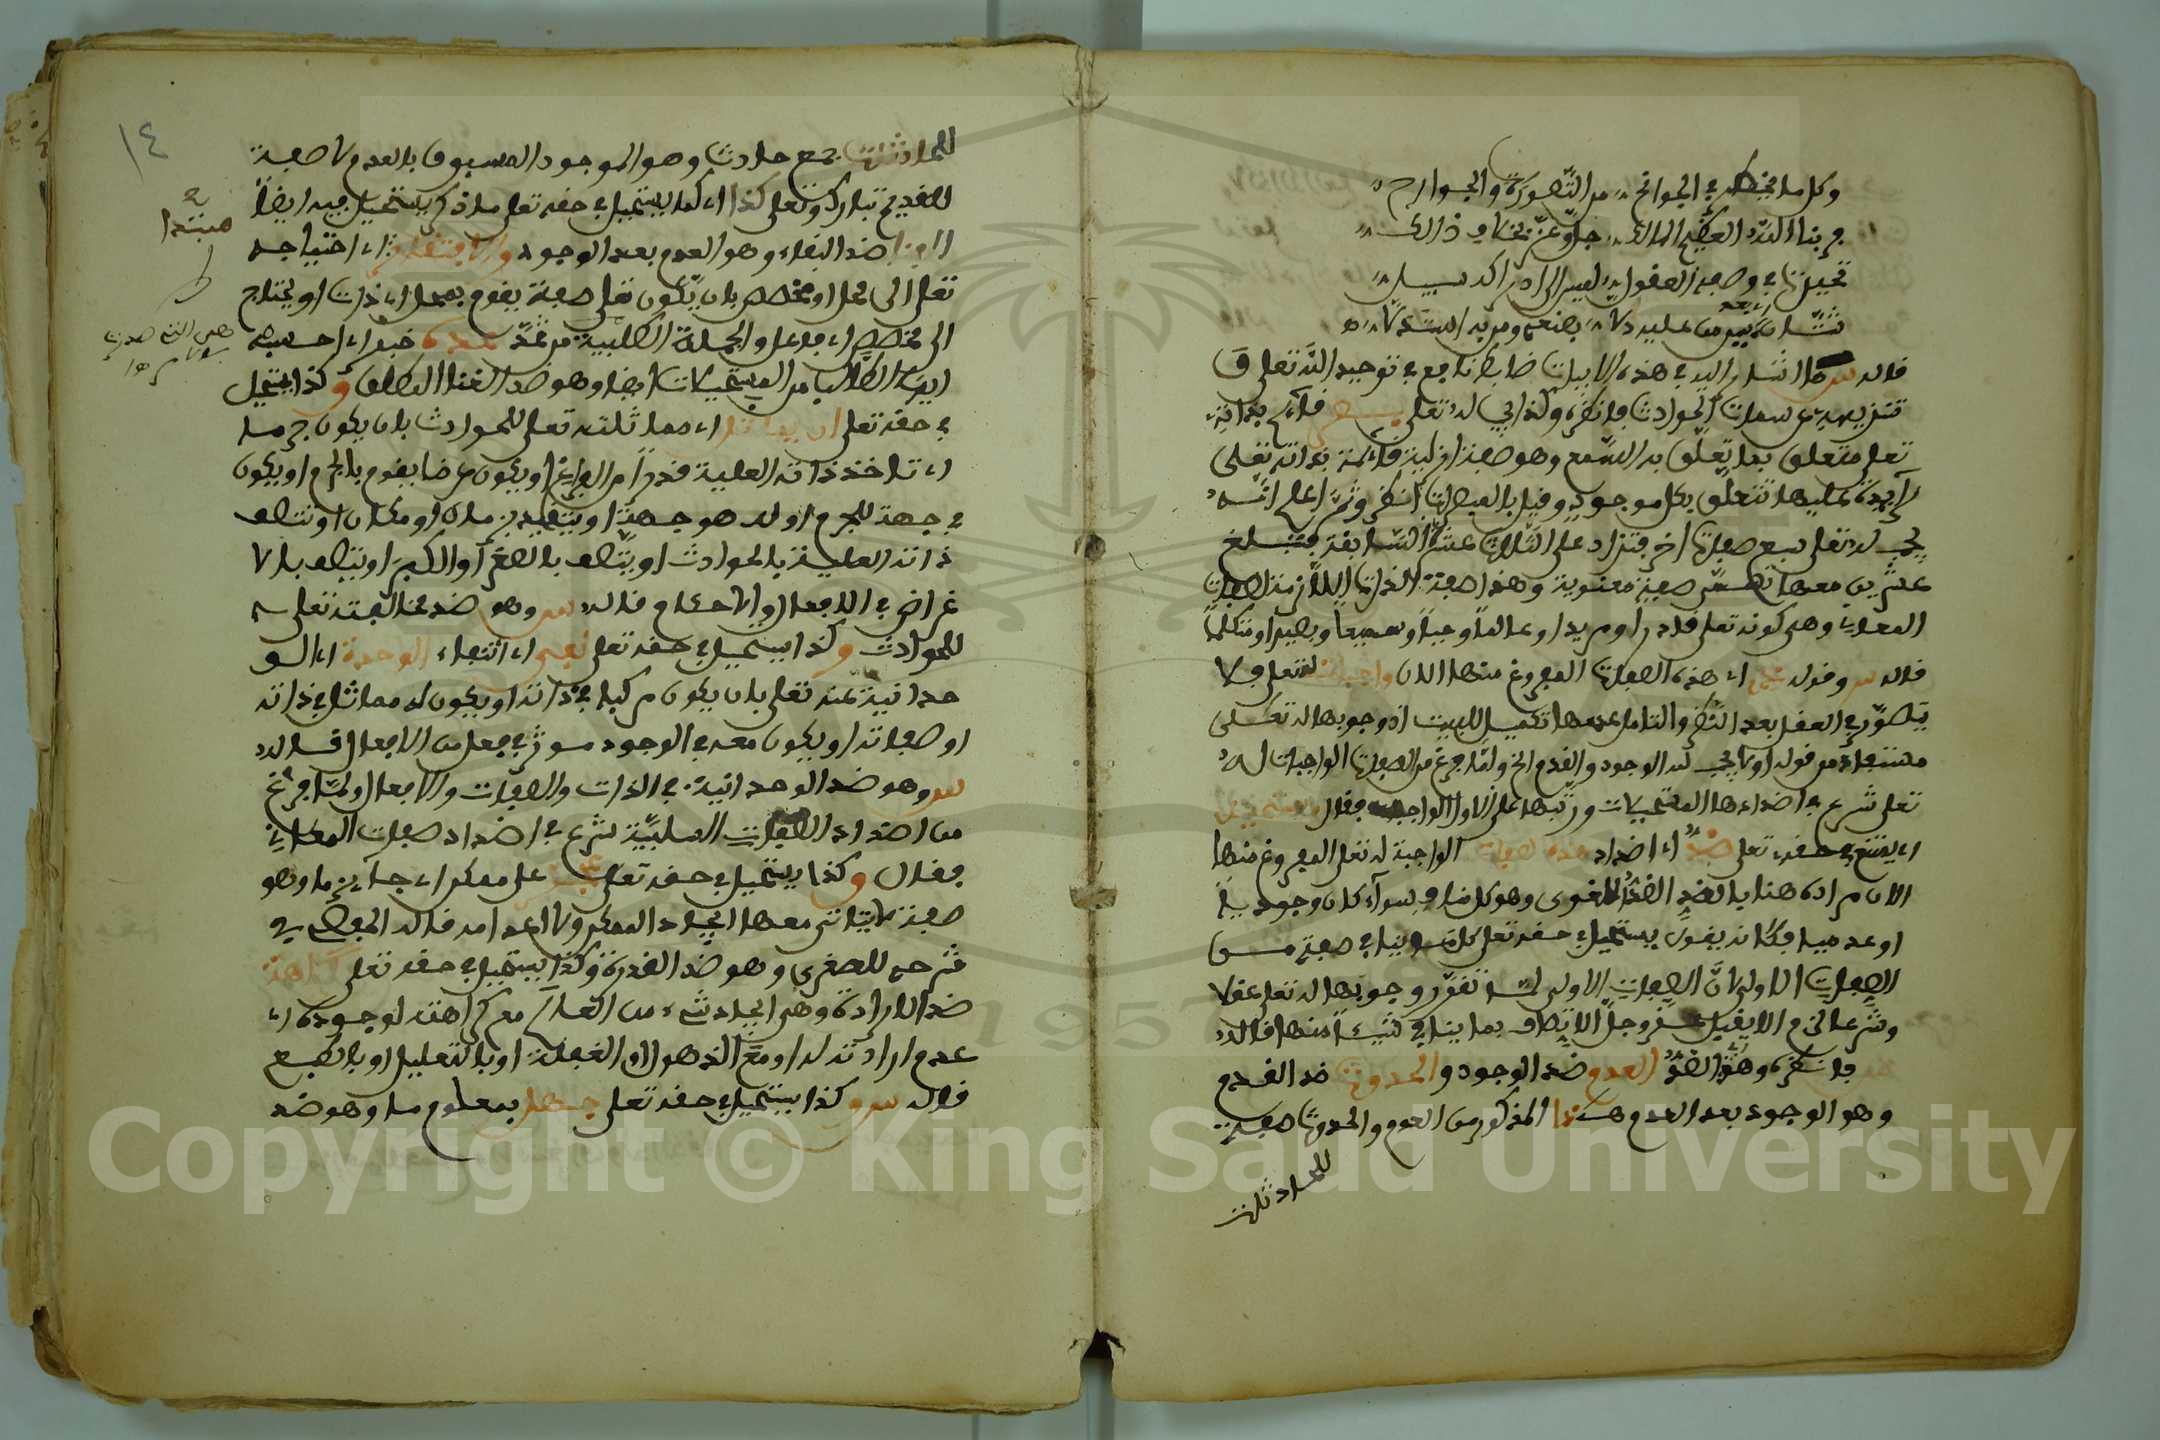 وكل ما يخطر في الجوانح من التصورات والجوارح
فربنا الله العظيم المالك جل وعز بخلاف ذالك
تحييرنا في وصفه العقول ليس إلى إدراكه سبيل
قال س لما أشار إليه في هذه الأبيات ضابط نافع في توحيد الله تعالى و
تنزيهه عن سمات الحوادث فانظره وكذا يجب له تعالى بصر قائم بذاته
تعالى متعلق بما يتعلق به السمع وهو صفة أزلية قائمة بذاته تعالى
زايدة عليها تتعلق بكل موجود وقيل بالمبصرات انظر وثم اعلم أنه
يجب له تعالى سبع صفات أخر فتزاد على الثلاث عشر السابقة فتبلغ
عشرين معها تسمى صفة معنوية وهذه صفة الذات اللازمة لصفات
المعاني وهي كونه تعالى قادرا ومريدا وعالما وحيا وسميعا وبصيرا ومتكلما
قال س وقوله هذه الصفات المفروغ منها الآن واجبات له تعالى فلا
يتصور في العقل بعد النظر والتامل عدمها تكميل للبيت إذ وجوبها له تعالى
مستفاد من قوله أولا يجب لله الوجود والقدم الخ ولما فرغ من الصفات الواجبات له
تعالى شرع في أضدادها المستحيلات ورتبها على الأول الواجب فقال ويستحيل
أي يمتنع في حقه تعالى ضد أي أضداد هذه الصفات الواجبة له تعالى المفروغ منها
الآن مراده هنا بالضد الضد اللغوي وهو كل مناف سواء كان وجوديا
أو عدميا فكأنه يقول يستحيل في حقه تعالى كل ما ينافي صفة من
الصفات الأولى لأن الصفات الأولى لما تقرر وجوبها له تعالى عقلا
وشرعا لزم ألا يقبل عز وجل الاتصاف بما ينافي شيئا منها قاله
س فانظره وهذا الضد العدم ضد الوجود والحدوث ضد القدم
وهو الوجود بعد العدم وهذا المذكور من العدم والحدوث صفة
للحادثات
١٤
للحادثات جمع حادث وهو الموجود المسبوق بالعدم لا صفة
للقديم تبارك وتعالى كذا أي كما يستحيل في حقه تعالى ما ذكر يستحيل فيه أيضا
الفنا ضد البقاء وهو العدم بعد الوجود والافتقار أي احتياجه
تعالى إلى محل أو مخصص بأن يكون تعالى صفة يقوم بمحل أي ذات أو يحتاج
إلى مخصص أي فاعل والجملة الطلبية من عده خبر أي احسبه
أيها الطالب من المستحيلات أيضا وهو ضد الغنا المطلق وكذا يستحيل
في حقه تعالى أن يماثل أي مماثلته تعالى للحوادث بأن يكون جرما
أي تاخذ ذاته العلية قدرا من الفراغ أو يكون عرضا يقوم بالجرم أو يكون
في جهة للجرم أو له هو جهة أو يتقيد بزمان أو مكان أو تتصف
ذاته العلية بالحوادث أو يتصف بالصغر أو الكبر أو يتصف بالا
غراض في الافعال والأحكام قاله س وهو ضد مخالفته تعالى
للحوادث وكذا يستحيل في حقه تعالى نفي أي انتفاء الوحدة أي الو
حدانية عنه تعالى بأن يكون مركبا في ذاته أو يكون له مماثل في ذاته
أو صفاته أو يكون معه في الوجود موثر في فعل من الافعال قاله
س وهو ضد الوحدانية في الذات والصفات والافعال ولما فرغ
من أضداد الصفات السلبية شرع في أضداد صفات المعاني
فقال وكذا يستحيل في حقه تعالى عجز على ممكن أي جائز ما وهو
صفة لا يتاتى معها إيجاد الممكن ولا إعدامه قاله المصنف في
شرحه للصغرى وهو ضد القدرة وكذا يستحيل في حقه تعالى كراهة
ضد الارادة وهي إيجاد شيء من العالم مع كراهته لوجوده أي
عدم إرادته له أو مع الذهول أو الغفلة أو بالتعليل أو بالطبع
قاله س وكذا يستحيل في حقه تعالى جهل بمعلوم ما وهو ضد
مبتدا
Copyright © King Saud University
1957